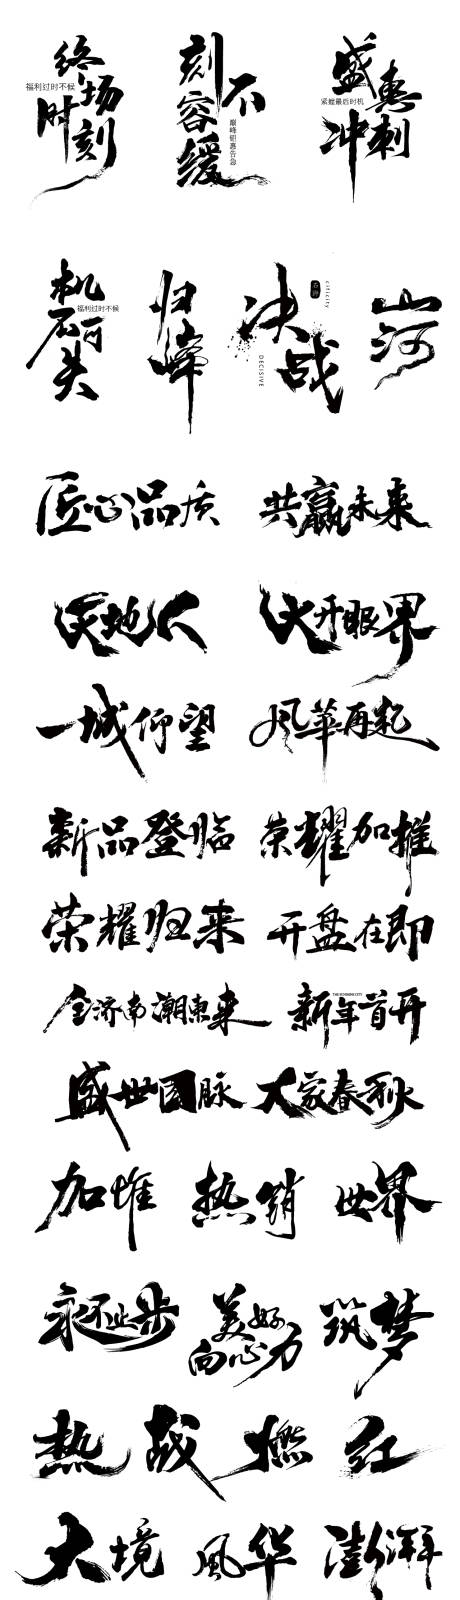 终场时刻
福利过时不候
刻不容缓
巅峰钜惠告急
盛惠冲刺
紧握最后时机
机不可失
福利过时不候
归峰
决战
DECISIVE
山河
匠心品质
共赢未来
天地人
大开眼界
一城仰望
风华再起
新品登临
荣耀加推
荣耀归来
开盘在即
全济南潮东来
新年首开
盛世国脉
大家春秋
加推
热销
世界
永不止步
美好向心力
筑梦
热战
燃
红
大境
風华
澎湃